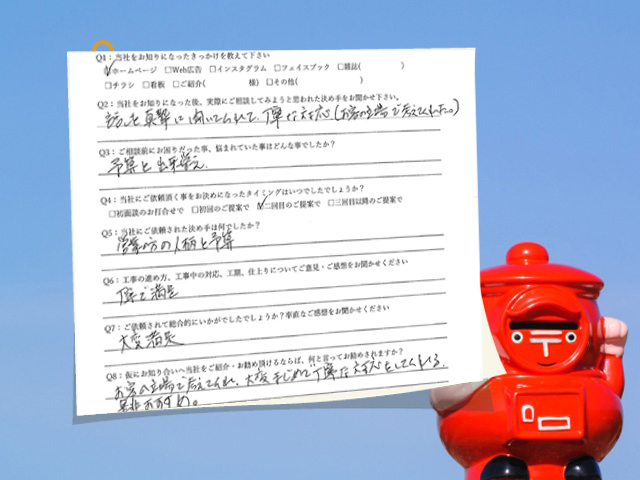 Q1：当社をお知りになったきっかけを教えて下さい
☑ホームページ　□Web広告　□インスタグラム　□フェイスブック　□雑誌(　　　　)
□チラシ　□看板　□ご紹介(　　　　　様)　□その他(　　　　　　)
Q2：当社をお知りになった後、実際にご相談してみようと思われた決め手をお聞かせ下さい。
話しを真摯に聞いてくれて、丁寧な対応（お客の立場で考えてくれた。）
Q3：ご相談前にお困りだった事、悩まれていた事はどんな事でしたか？
予算と出来栄え
Q4：当社にご依頼頂く事をお決めになったタイミングはいつでしたでしょうか？
□初面談のお打合せで　□初回のご提案で　☑二回目のご提案で　□三回目以降のご提案で
Q5：当社にご依頼された決め手は何でしたか？
営業の方の人柄と予算
Q6：工事の進め方、工事中の対応、工期、仕上りについてご意見・ご感想をお聞かせください
満足
Q7：ご依頼されて総合的にいかがでしたでしょうか？率直なご感想をお聞かせください
大変満足
Q8：仮にお知り合いへ当社をご紹介・お勧め頂けるならば、何と言ってお勧めされますか？
お客の立場で考えてくれ、大変まじめで丁寧な対応をしてくれる。
是非おすすめ。